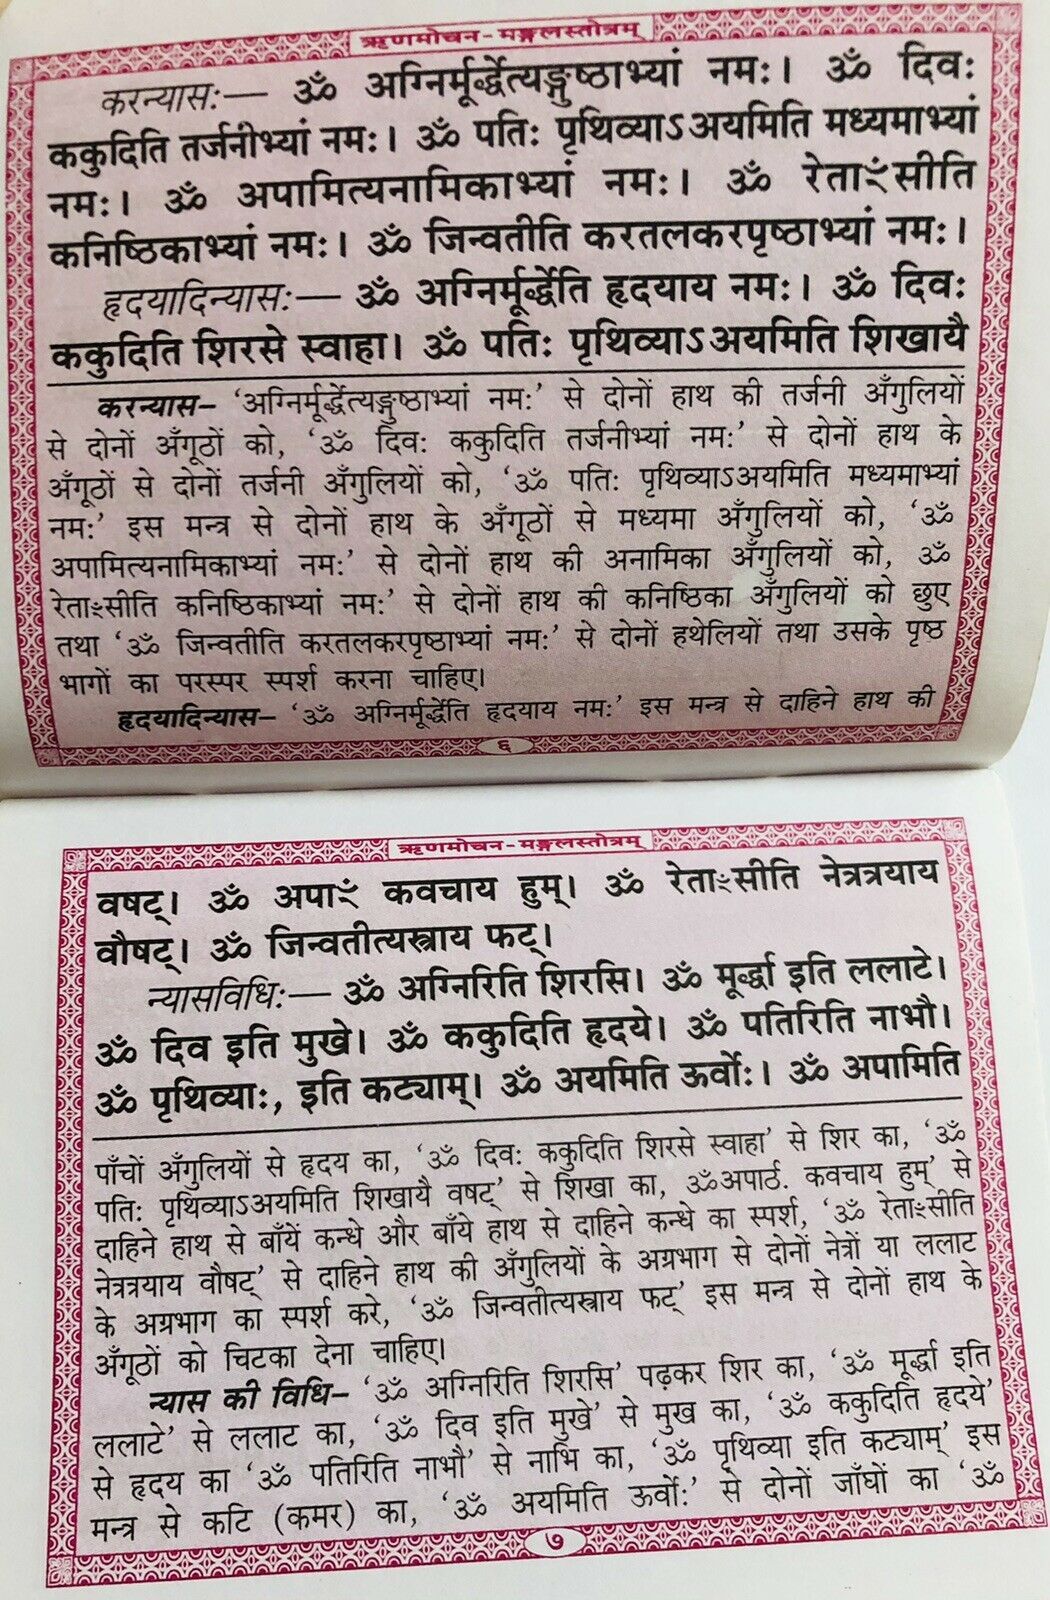 ऋणमोचन-मङ्गलस्तोत्रम्
करन्यासः— ॐ अग्निर्मूर्द्धेत्यङ्गुष्ठाभ्यां नमः। ॐ दिवः
ककुदिति तर्जनीभ्यां नमः। ॐ पतिः पृथिव्याऽअयमिति मध्यमाभ्यां
नमः। ॐ अपामित्यनामिकाभ्यां नमः। ॐ रेताꣳसीति
कनिष्ठिकाभ्यां नमः। ॐ जिन्वतीति करतलकरपृष्ठाभ्यां नमः।
हृदयादिन्यासः— ॐ अग्निर्मूर्द्धेति हृदयाय नमः। ॐ दिवः
ककुदिति शिरसे स्वाहा। ॐ पतिः पृथिव्याऽअयमिति शिखायै
करन्यास– ‘अग्निर्मूर्द्धेत्यङ्गुष्ठाभ्यां नमः’ से दोनों हाथ की तर्जनी अँगुलियों
से दोनों अँगूठों को, ‘ॐ दिवः ककुदिति तर्जनीभ्यां नमः’ से दोनों हाथ के
अँगूठों से दोनों तर्जनी अँगुलियों को, ‘ॐ पतिः पृथिव्याऽअयमिति मध्यमाभ्यां
नमः’ इस मन्त्र से दोनों हाथ के अँगूठों से मध्यमा अँगुलियों को, ‘ॐ
अपामित्यनामिकाभ्यां नमः’ से दोनों हाथ की अनामिका अँगुलियों को, ॐ
रेताꣳसीति कनिष्ठिकाभ्यां नमः’ से दोनों हाथ की कनिष्ठिका अँगुलियों को छुए
तथा ‘ॐ जिन्वतीति करतलकरपृष्ठाभ्यां नमः’ से दोनों हथेलियों तथा उसके पृष्ठ
भागों का परस्पर स्पर्श करना चाहिए।
हृदयादिन्यास– ‘ॐ अग्निर्मूर्द्धेति हृदयाय नमः’ इस मन्त्र से दाहिने हाथ की
६
ऋणमोचन-मङ्गलस्तोत्रम्
वषट्। ॐ अपाꣳ कवचाय हुम्। ॐ रेताꣳसीति नेत्रत्रयाय
वौषट्। ॐ जिन्वतीत्यस्त्राय फट्।
न्यासविधिः— ॐ अग्निरिति शिरसि। ॐ मूर्द्धा इति ललाटे।
ॐ दिव इति मुखे। ॐ ककुदिति हृदये। ॐ पतिरिति नाभौ।
ॐ पृथिव्याः, इति कट्याम्। ॐ अयमिति ऊर्वोः। ॐ अपामिति
पाँचों अँगुलियों से हृदय का, ‘ॐ दिवः ककुदिति शिरसे स्वाहा’ से शिर का, ‘ॐ
पतिः पृथिव्याऽअयमिति शिखायै वषट्’ से शिखा का, ॐअपार्ठ. कवचाय हुम्’ से
दाहिने हाथ से बाँयें कन्धे और बाँये हाथ से दाहिने कन्धे का स्पर्श, ‘ॐ रेताꣳसीति
नेत्रत्रयाय वौषट्’ से दाहिने हाथ की अँगुलियों के अग्रभाग से दोनों नेत्रों या ललाट
के अग्रभाग का स्पर्श करे, ‘ॐ जिन्वतीत्यस्त्राय फट्’ इस मन्त्र से दोनों हाथ के
अँगूठों को चिटका देना चाहिए।
न्यास की विधि– ‘ॐ अग्निरिति शिरसि’ पढ़कर शिर का, ‘ॐ मूर्द्धा इति
ललाटे’ से ललाट का, ‘ॐ दिव इति मुखे’ से मुख का, ‘ॐ ककुदिति हृदये’
से हृदय का ‘ॐ पतिरिति नाभौ’ से नाभि का, ‘ॐ पृथिव्या इति कट्याम्’ इस
मन्त्र से कटि (कमर) का, ‘ॐ अयमिति ऊर्वोः’ से दोनों जाँघों का ‘ॐ
७